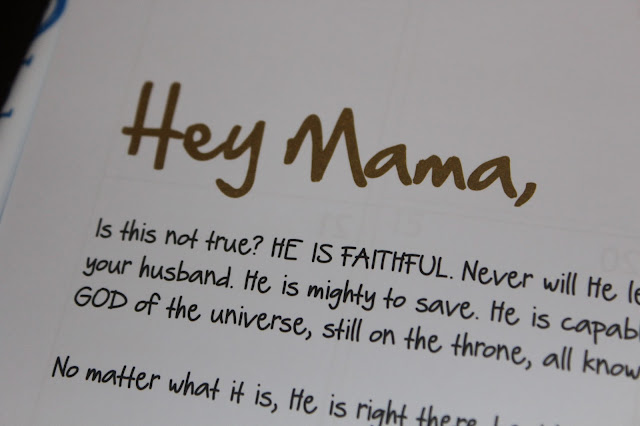 Hey Mama,
Is this not true? HE IS FAITHFUL. Never will He
your husband. He is mighty to save. He is
GOD of the universe, still on the throne, all
No matter what it is, He is right there